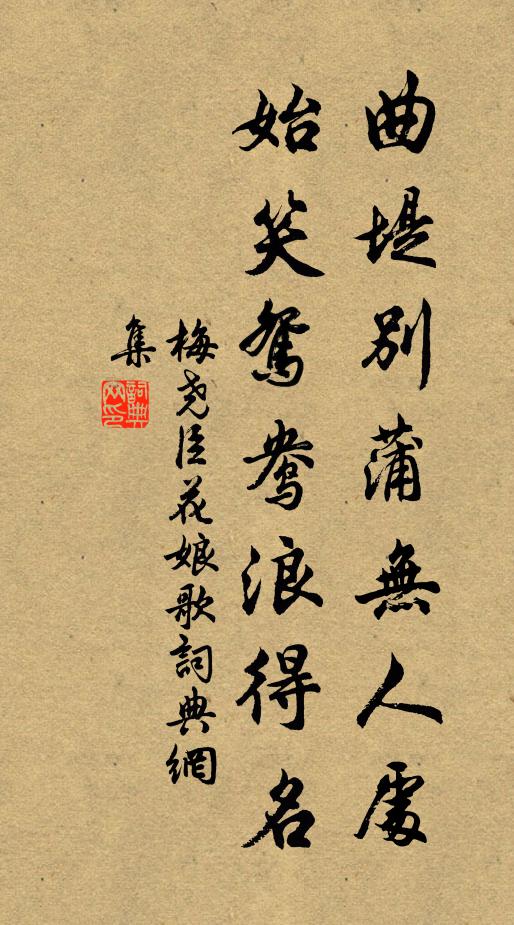 曲堤别蒲無人處
始笑鴛鴦浪得名
梅尧臣花娘歌詞典網
集
詞典
网印